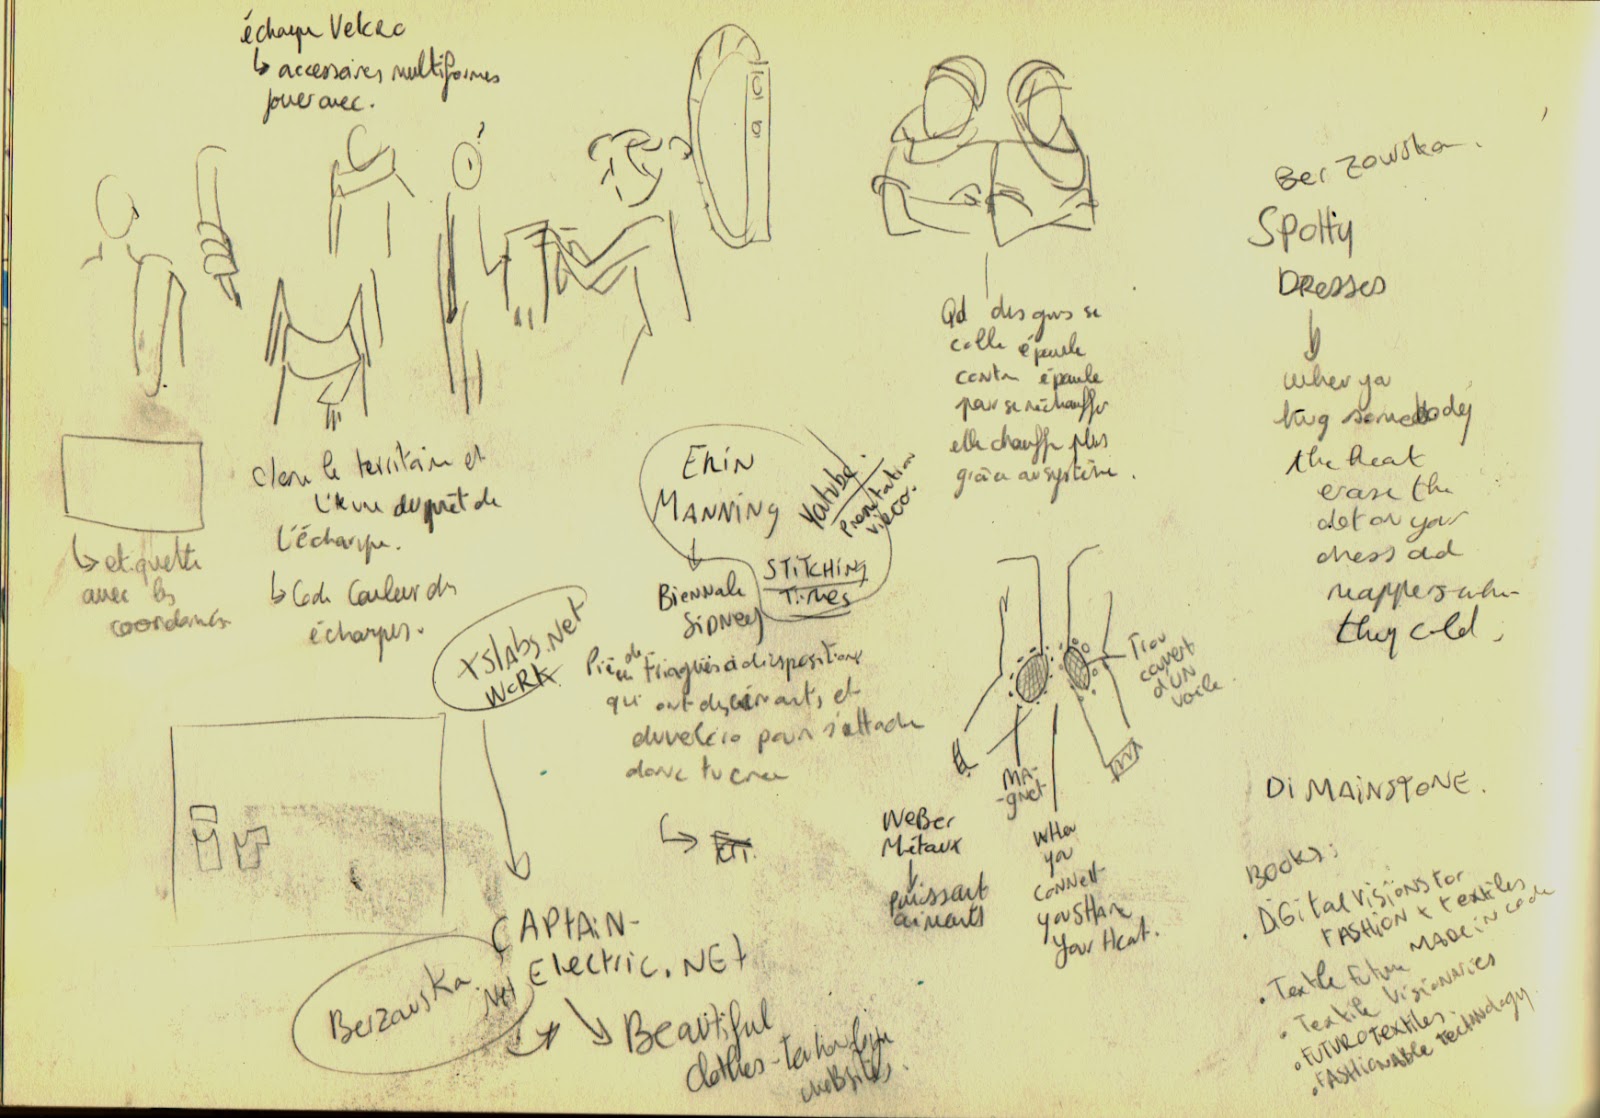 écharpe Velcro
↳ accessoires multiformes
jouer avec.
?
↳ etiquette
avec les
coordonnées
le territoire et
de
L'écharpe.
↳ Code Couleur des
écharpes.
ERiN
MANNiNg
Youtube.
Presentation
video.
Biennale
SiDNEy
STiTCHiNg
TiMes
xslabs.Net
WORK
qui ont des aimants, et
du velcro pour s'attacher
donc tu crée
↳
CAPTAiN-
Electric.NET
Berzowska.
.Net
Beautiful
clothes-technologie
websites.
Qd des gens se
colle épaule
contre épaule
pour se réchauffer
elle chauffe plus
grâce au système.
Trou
couvert
d'UN
voile.
MA-
-gnet
WeBer
Métaux
Puissant
aimants
WHen
you
connect
youSHare
your Heat.
Berzowska.
SPotty
DResses
when you
hug somebody
the heat
erase the
dot on your
dress and
reappers when
they cold.
Di MAiNSTONE.
BOOKS:
• DiGital VisiONS for
FASHiON + textiles
MADE iN code
• Textile Future
• Textile Visionaries
• FUTUROTextiles.
• FASHiONABLe TecHNology.